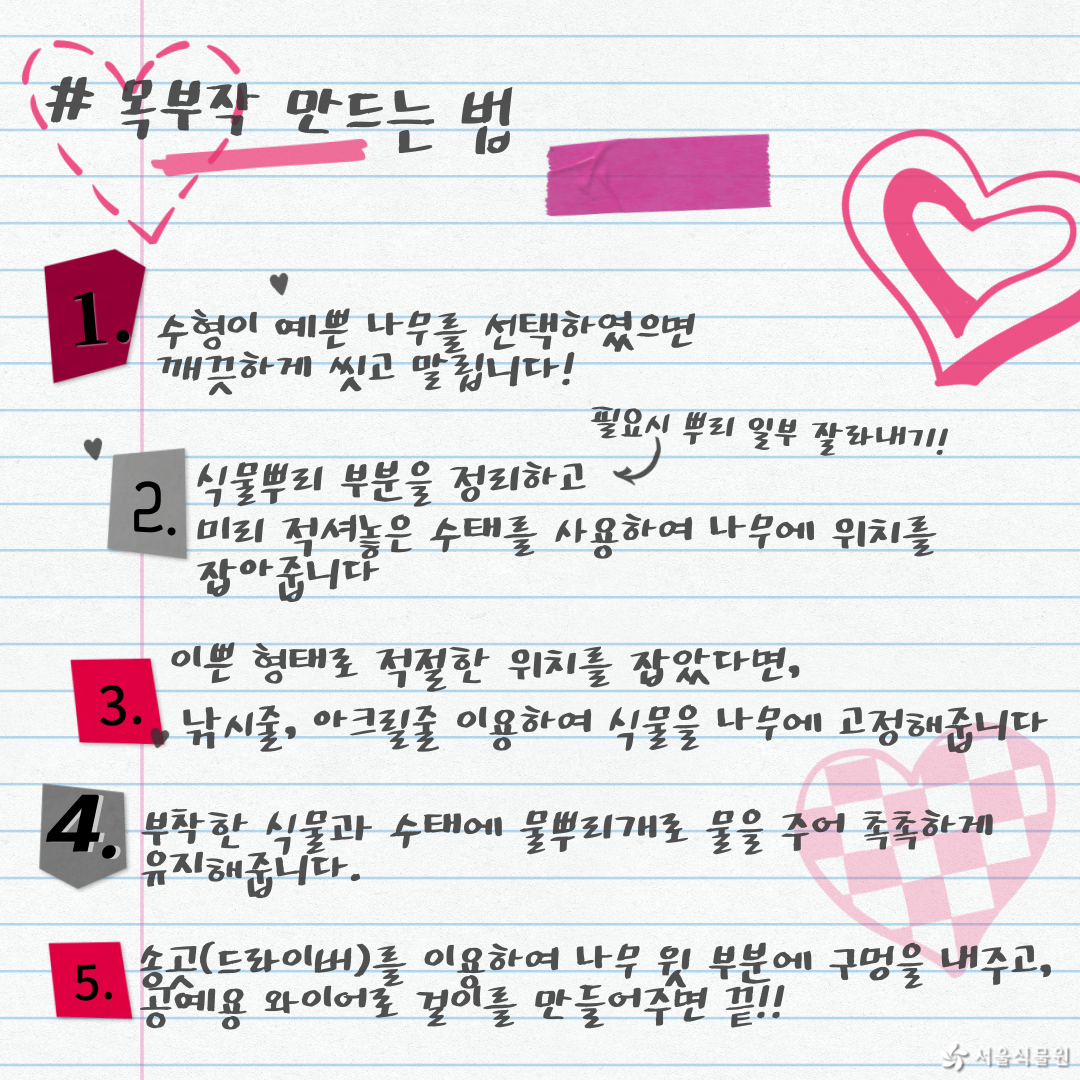 # 목부작 만드는 법
1. 수형이 예쁜 나무를 선택하였으면
깨끗하게 씻고 말립니다!
필요시 뿌리 일부 잘라내기!!
2. 식물뿌리 부분을 정리하고
미리 적셔놓은 수태를 사용하여 나무에 위치를
잡아줍니다
3. 이쁜 형태로 적절한 위치를 잡았다면,
낚시줄, 아크릴줄 이용하여 식물을 나무에 고정해줍니다
4. 부착한 식물과 수태에 물뿌리개로 물을 주어 촉촉하게
유지해줍니다.
5. 송곳(드라이버)를 이용하여 나무 윗 부분에 구멍을 내주고,
공예용 와이어로 걸이를 만들어주면 끝!!
서울식물원